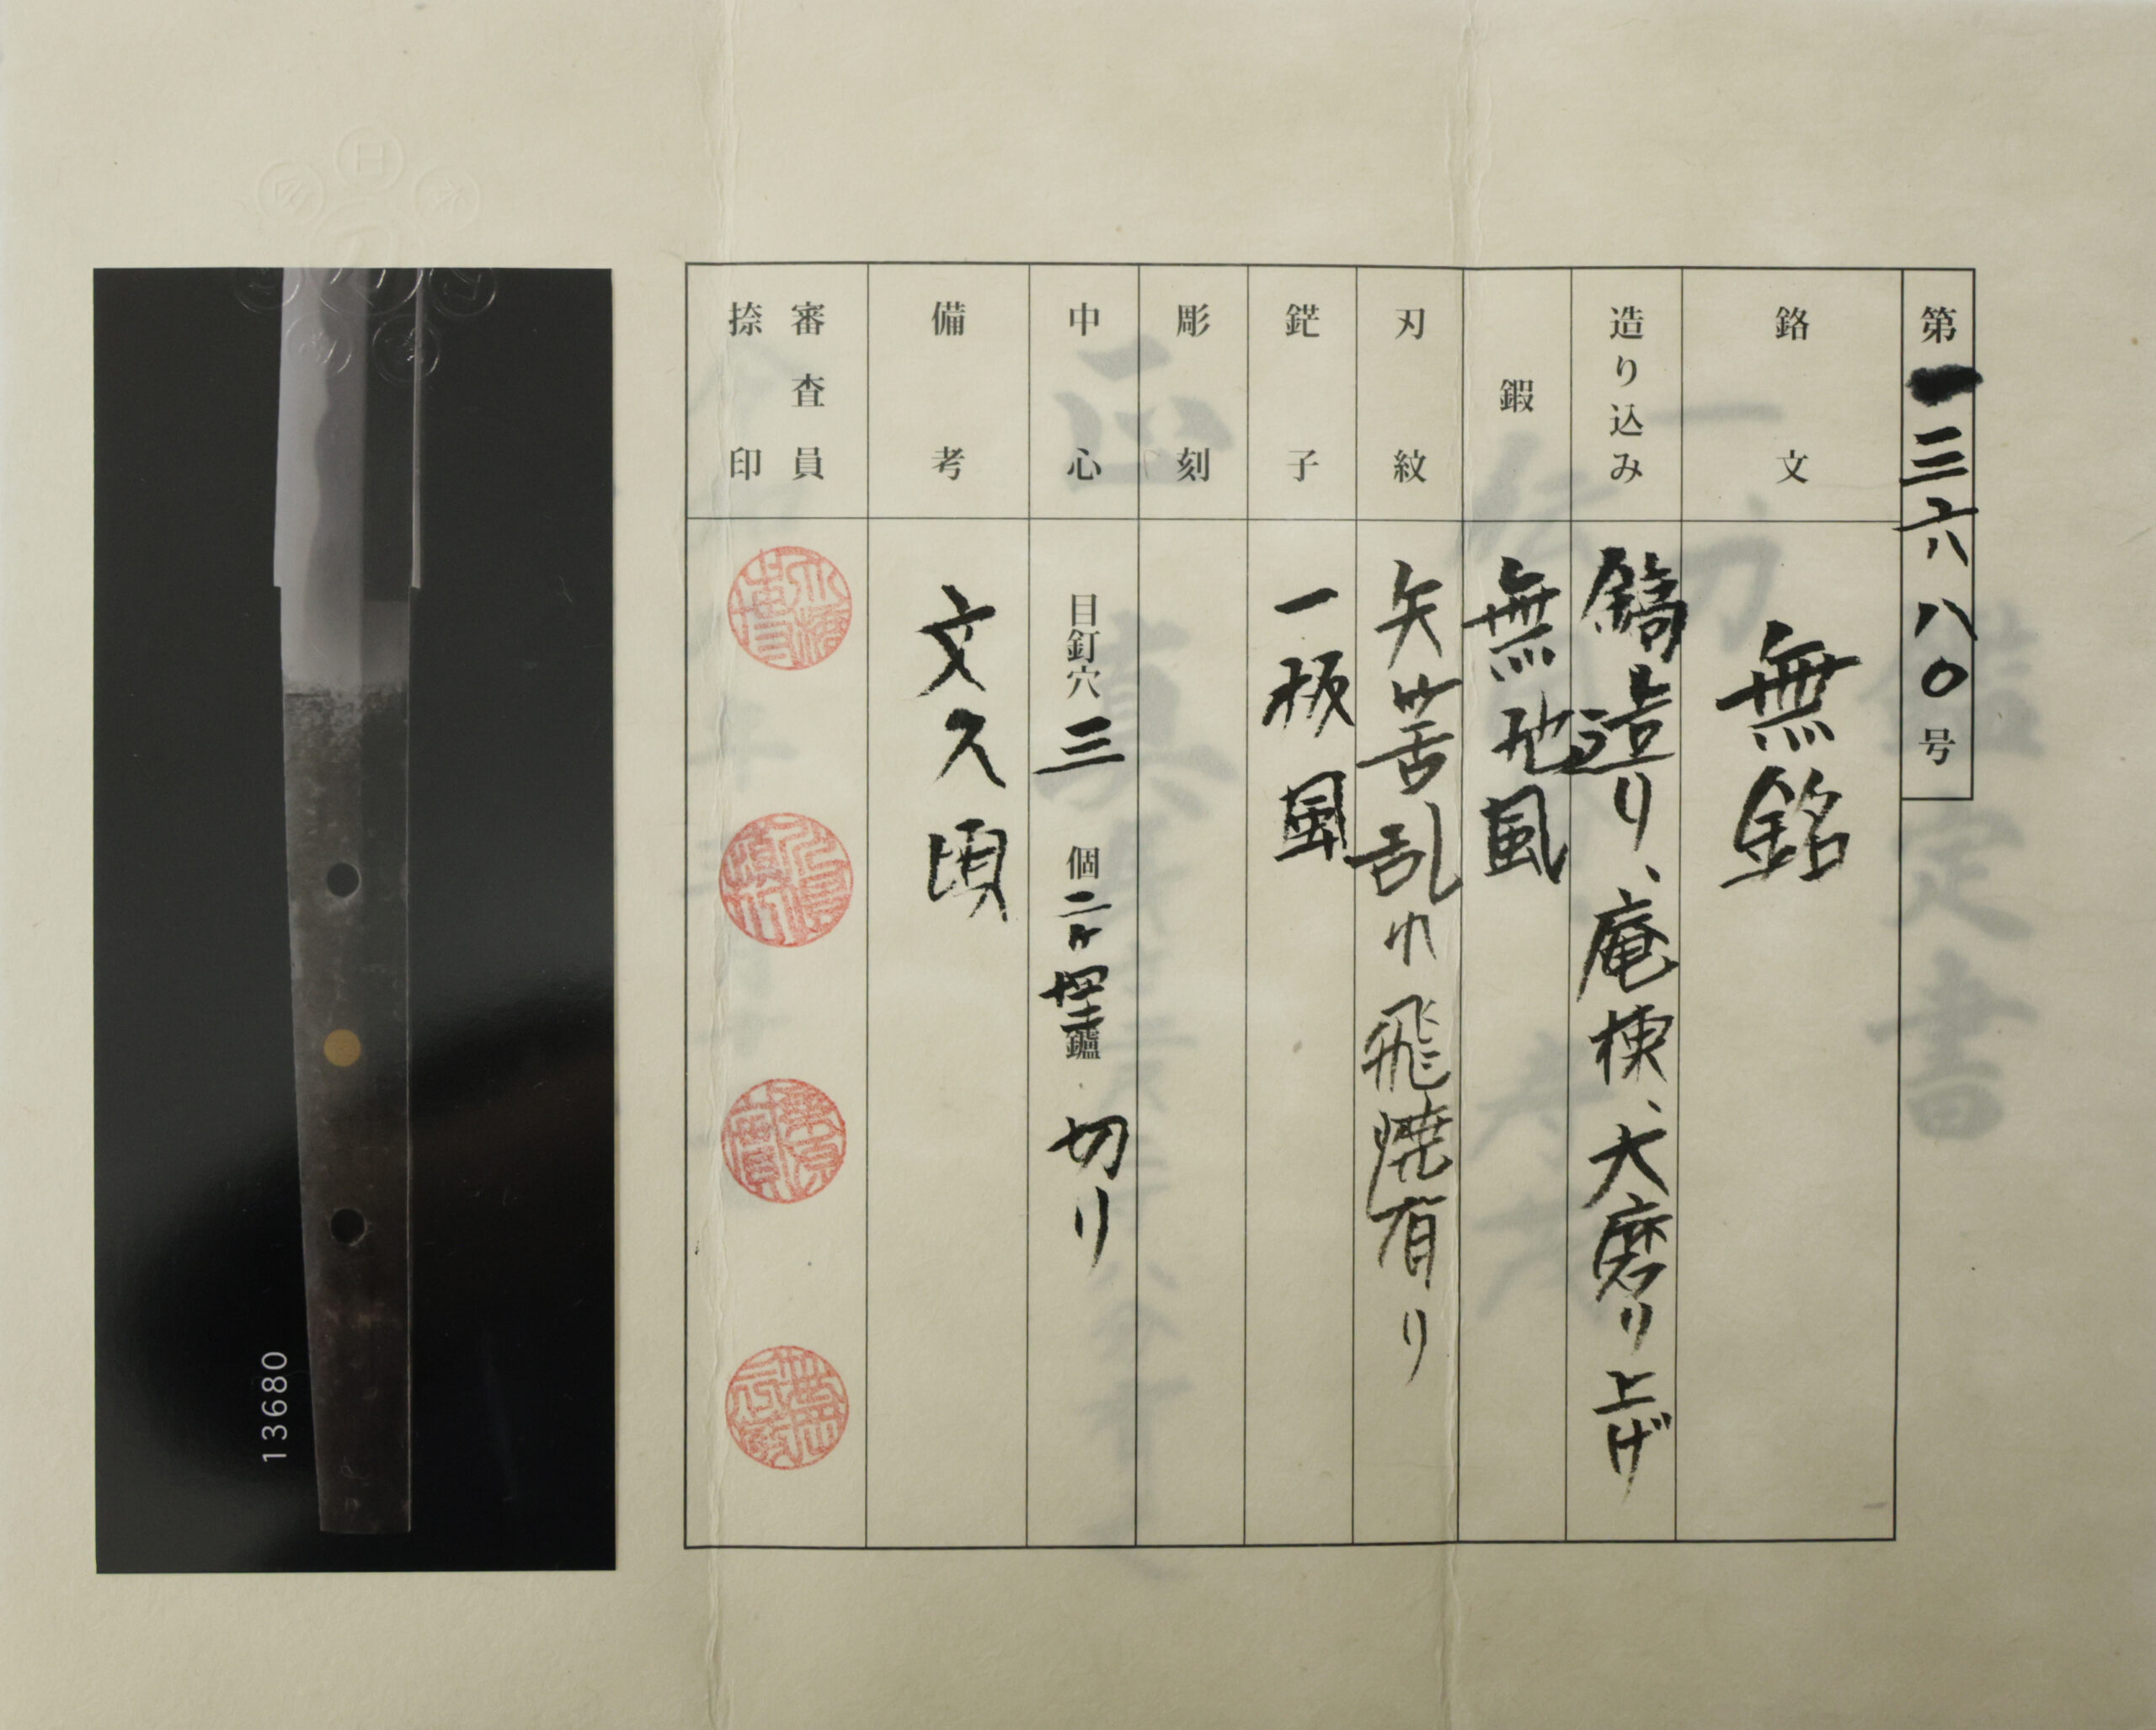 第一三六八〇号
銘文 無銘
造り込み 鎬造り、庵棟、大磨り上げ
鍜 無地風
刃紋 矢筈乱れ 飛焼有り
鋩子 一枚風
彫刻
中心 目釘穴 三 個 鑢 切り
備考 文久頃
審査員
捺印
13680